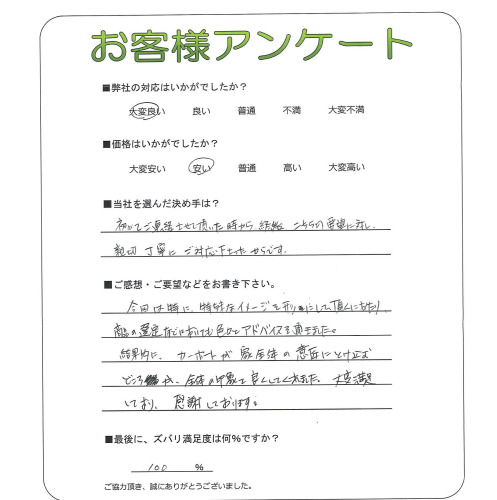 お客様アンケート
■弊社の対応はいかがでしたか？
大変良い 良い 普通 不満 大変不満
■価格はいかがでしたか？
大変安い 安い 普通 高い 大変高い
■当社を選んだ決め手は？
初めてご連絡させて頂いた時から こちらの要望に対し、
親切 丁寧に ご対応下さったからです。
■ご感想・ご要望などをお書き下さい。
今回は特に、特殊なイメージを形にして頂くにあたり、
商品の選定などにおいても色々とアドバイスを頂きました。
結果的に、カーポートが 家全体の 意匠にとけ込む
どころか、全体の印象を良くしてくれました。大変満足
しており、感謝しております。
■最後に、ズバリ満足度は何％ですか？
100 ％
ご協力頂き、誠にありがとうございました。